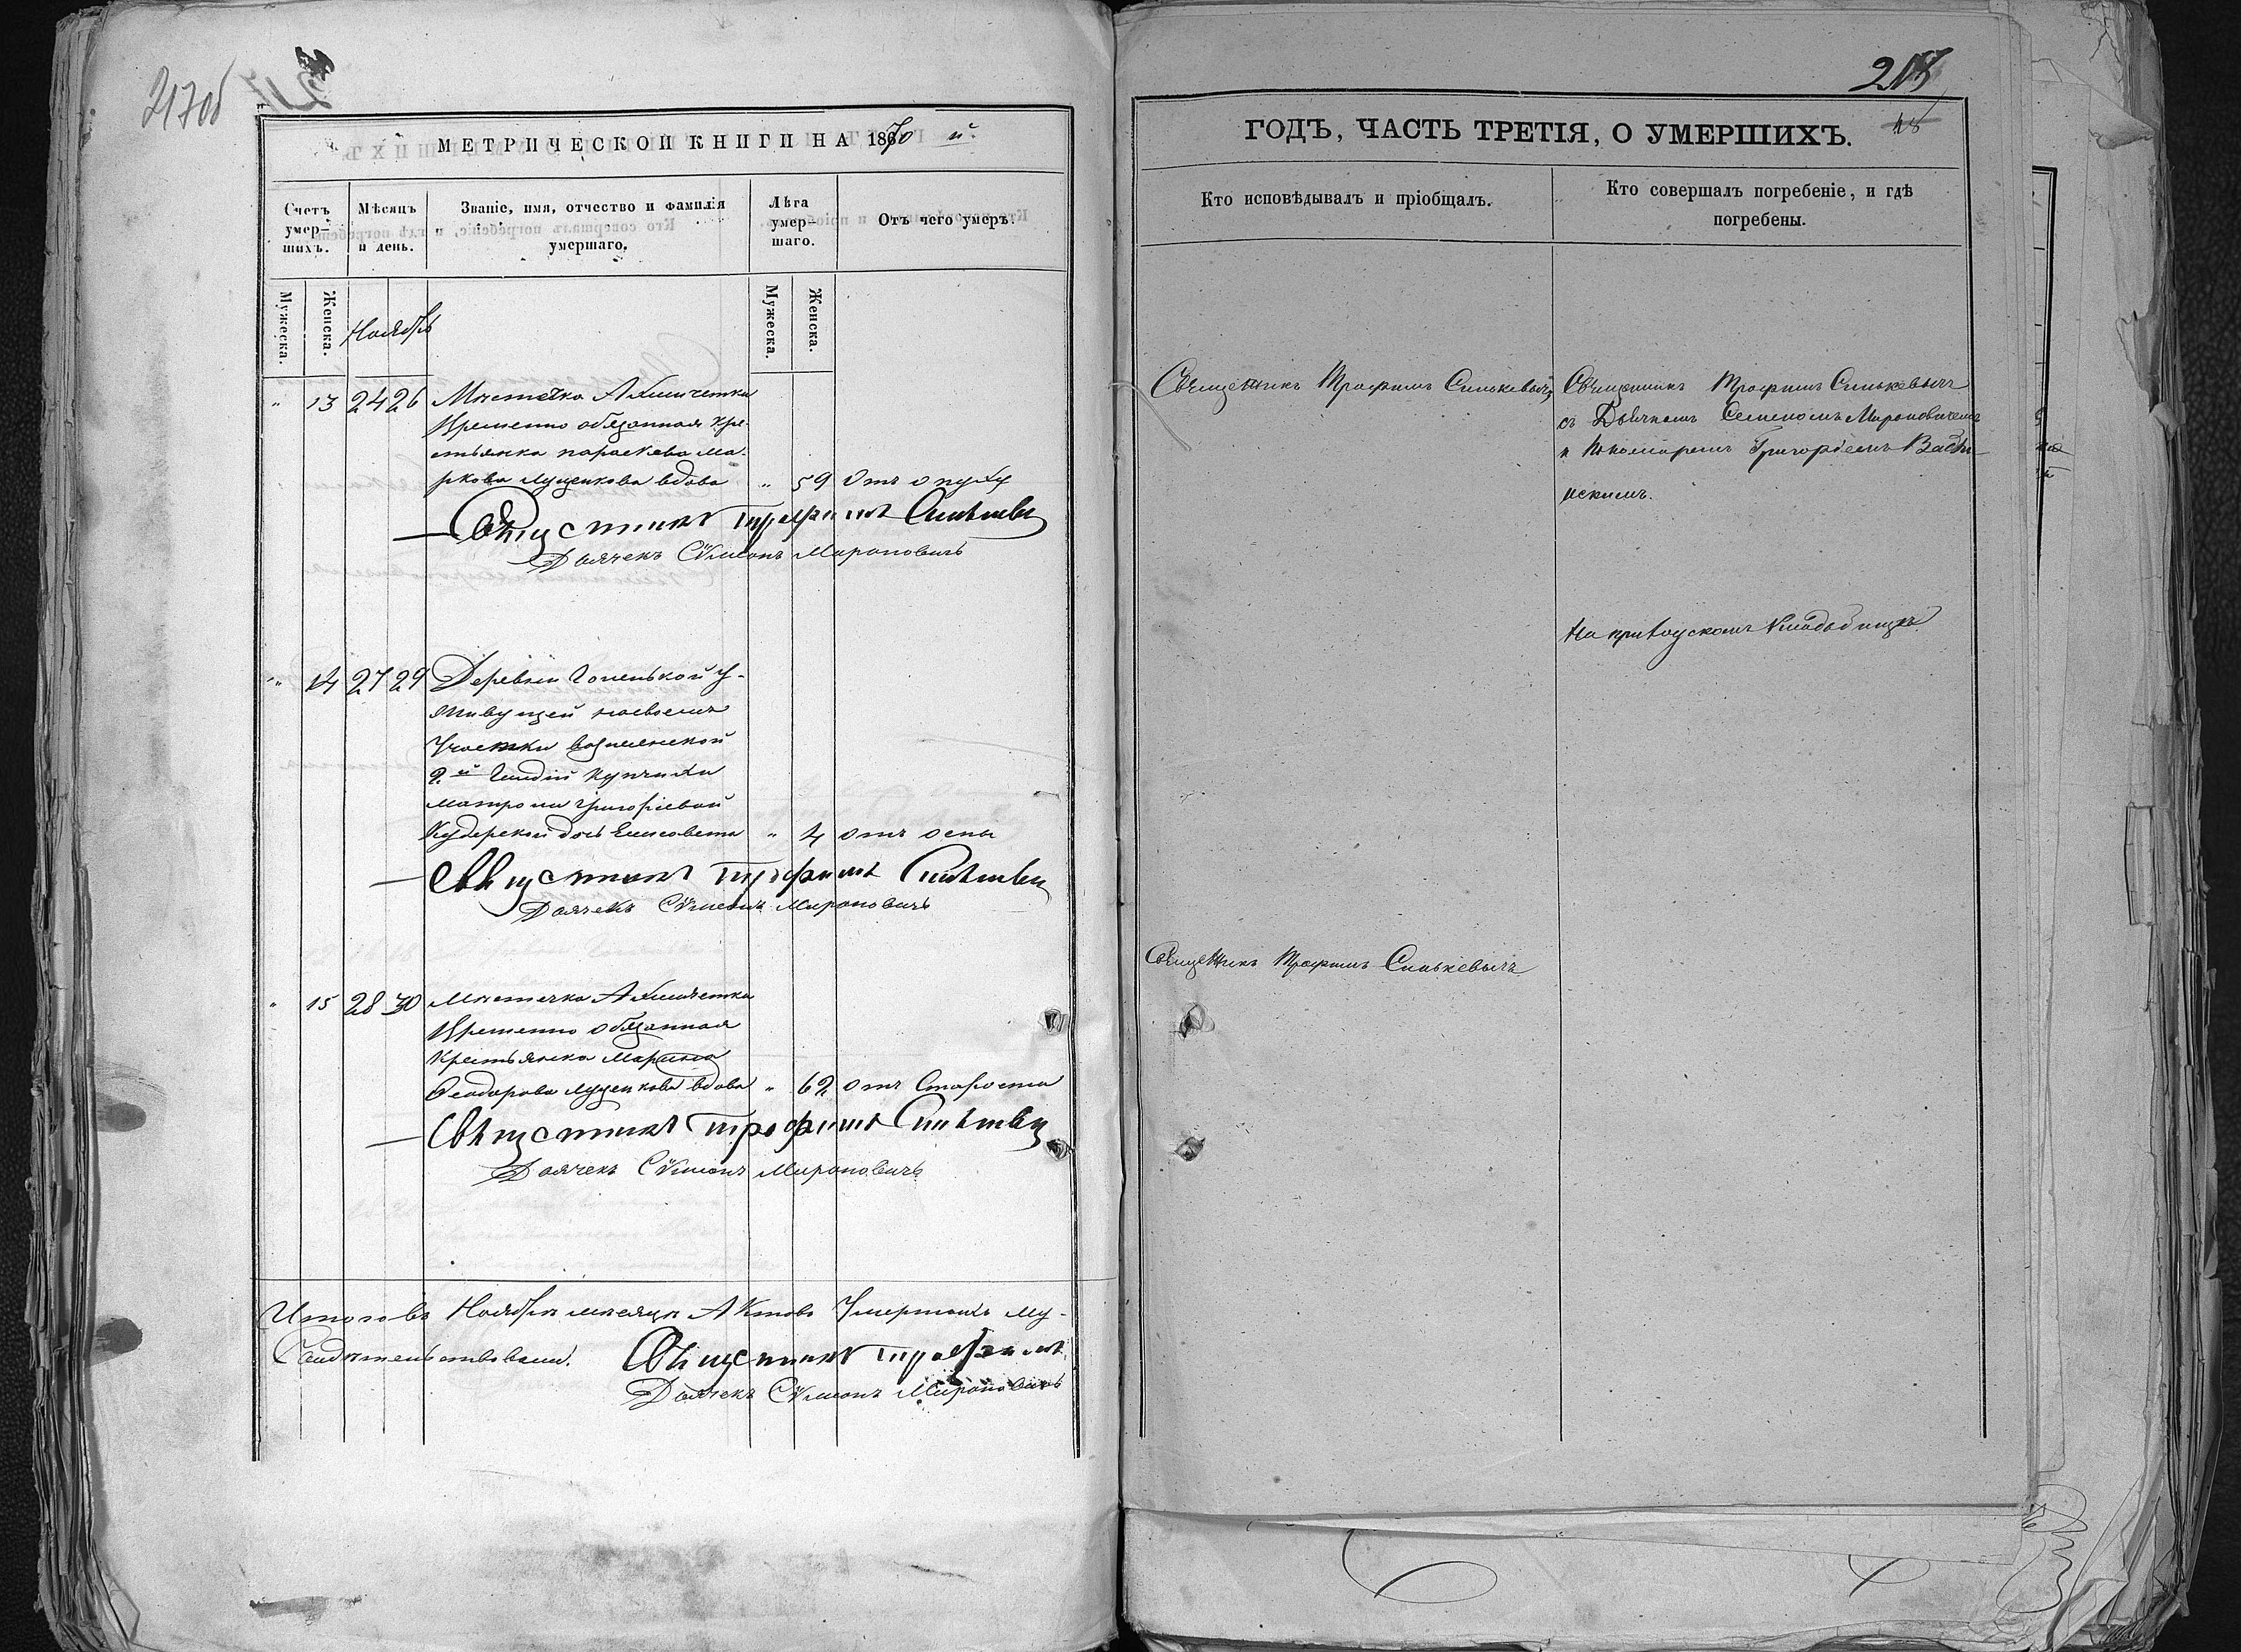 217об
МЕТРИЧЕСКОЙ КНИГИ НА 1870 й
Счетъ умер-шихъ.
Мѣсяцъ и день.
Званіе, имя, отчество и фамилія умершаго.
Лѣта умер-шаго.
Отъ чего умеръ.
Мужеска.
Женска.
Ноябрь
Мужеска.
Женска.
" 13 24 26 Мѣстечка Ахмечетки
Временно обязанная кре-
стьянка параскева Ма-
ркова Луценкова вдова " 59 Отъ опуху
Священникъ Трофимъ Синькевич
Дьячекъ Сѵмеонъ Мироновичъ
" 14 27 29 Деревни
живущей насвоемъ
Участки
2й Гилдіи Купчихи
Матроны Григоріевой
Кудерской дочь Елисовета " 4 отъ оспы
Священникъ Трофимъ Синькевич
Дьячекъ Сѵмеонъ Мироновичъ
" 15 28 30 Мѣстечка Ахмечетки
Временно обязанная
Крестьянка Марина
Ѳеодорова Луценкова вдова " 62 отъ Старости
Священникъ Трофимъ Синькевич
Дьячекъ Сѵмеонъ Мироновичъ
Итого въ Ноябрѣ мѣсяцѣ Актовъ Умершихъ му-
Свидѣтельствовали. Священникъ Трофимъ
Дьячекъ Сѵмеонъ Мироновичъ
218
ГОДЪ, ЧАСТЬ ТРЕТІЯ, О УМЕРШИХЪ.
Кто исповѣдывалъ и пріобщалъ.
Кто совершалъ погребеніе, и гдѣ
погребены.
Священникъ Трофимъ Синькевичъ
Священникъ Трофимъ Синькевичъ
съ Дьячкомъ Семеномъ Мироновичемъ
и Пономаремъ Григоріемъ
нскимъ.
На приходскомъ Кладбищѣ
Священникъ Трофимъ Синькевичъ